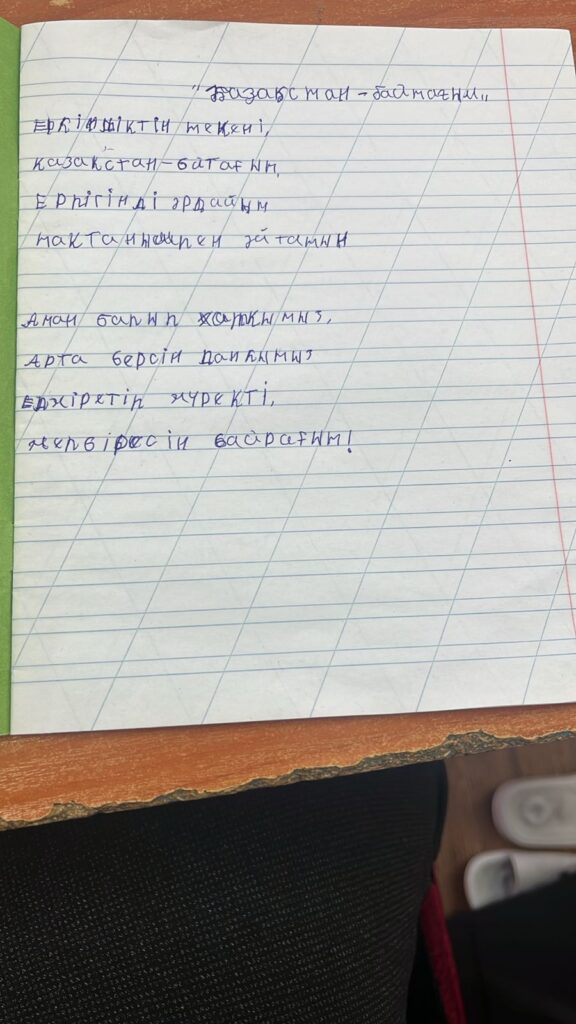 "Қазақстан - байтағым"
Еркіндіктің мекені,
қазақстан-батағым,
Ерлігінді әрдайым
мақтанышпен айтамын
Аман барып халқымыз,
Арта берсін даңқымыз
Елжіретіп жүректі,
желбіресін байрағым!